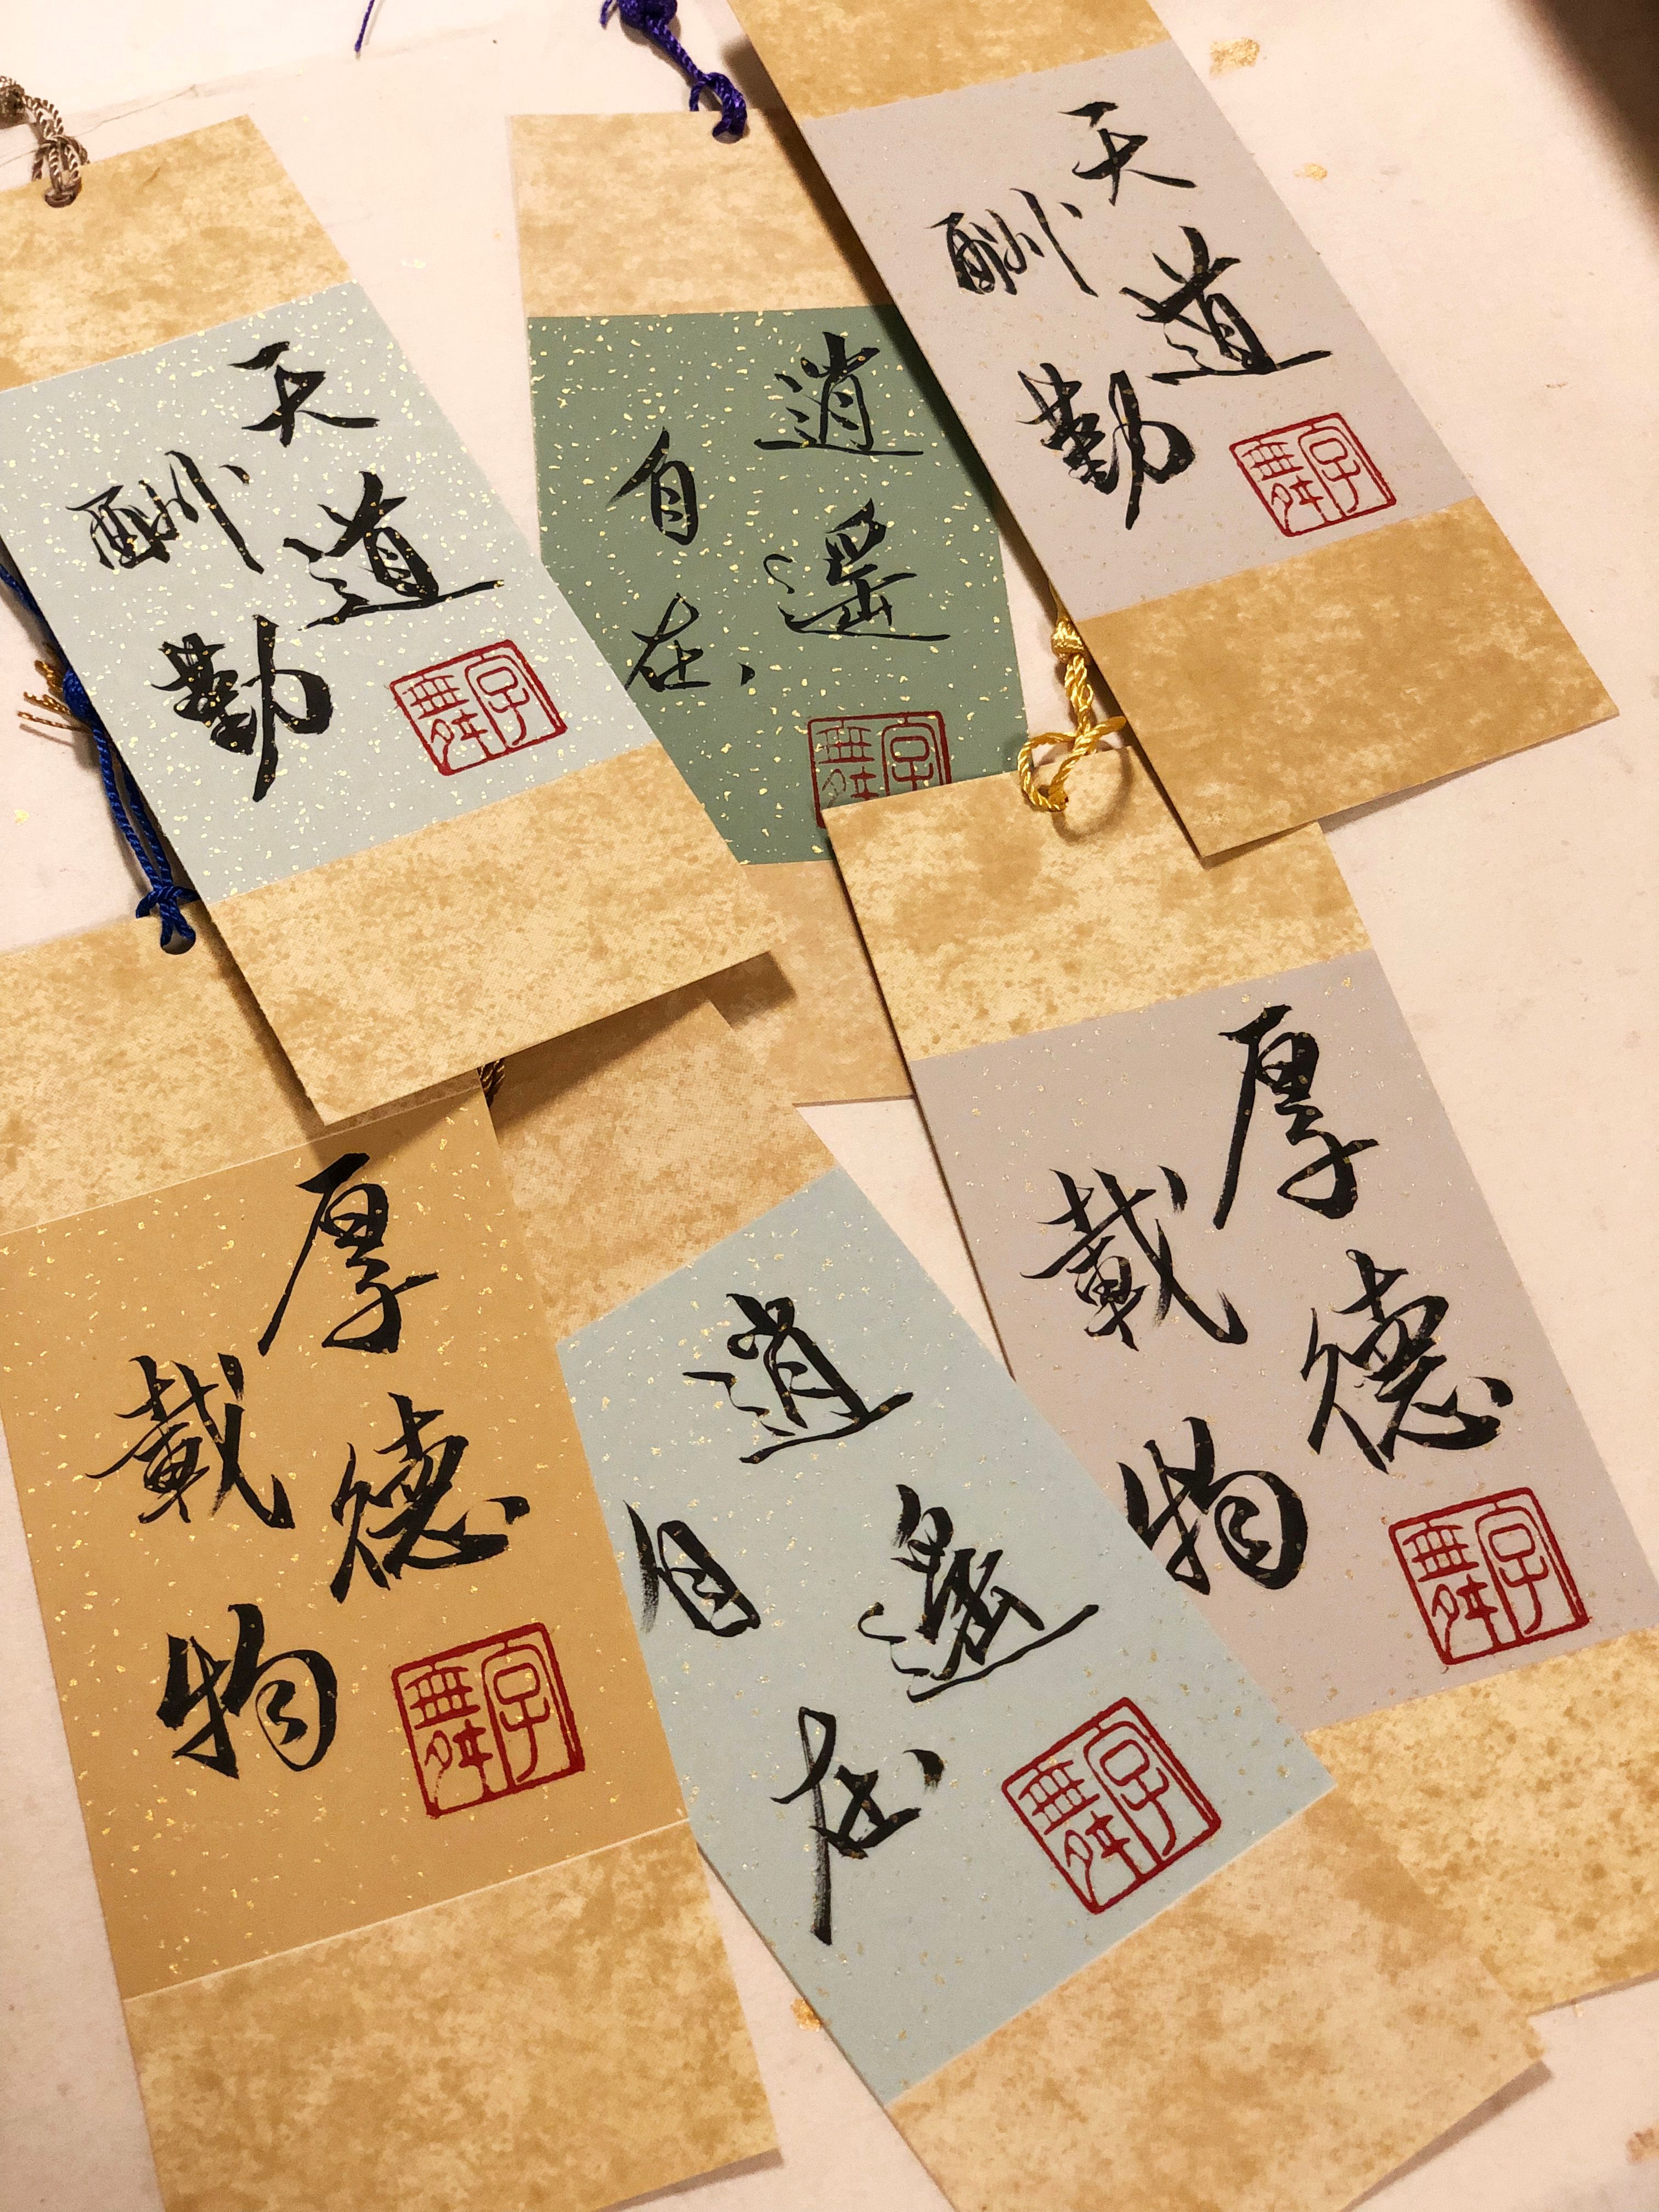 天道
酬勤
字舞
逍遥
自在
字舞
天道
酬勤
字舞
厚德
載物
字舞
逍遥
自在
字舞
厚德
載物
字舞